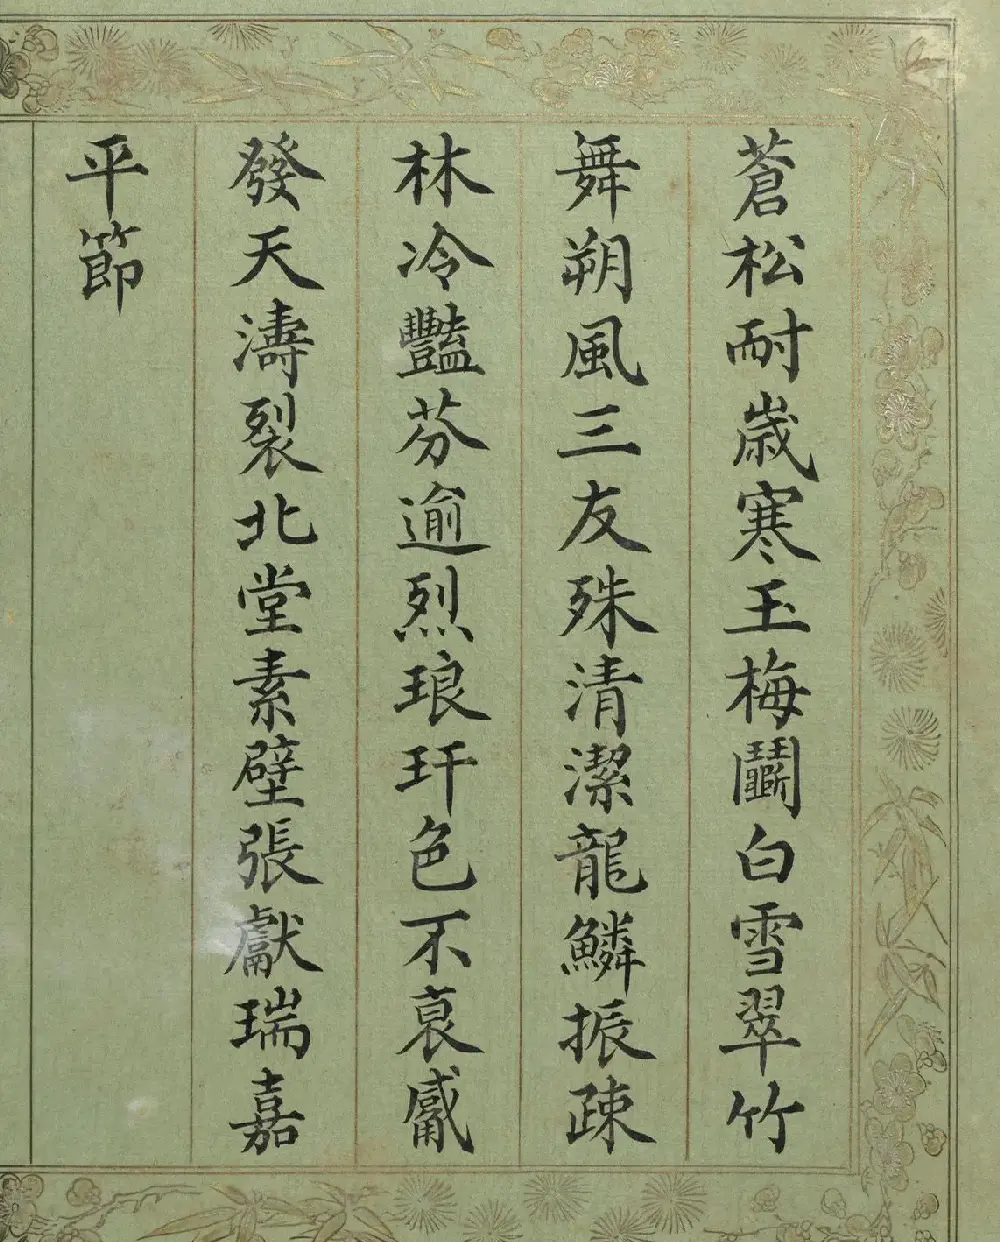 蒼松耐歲寒玉梅鬭白雪翠竹
舞朔風三友殊清潔龍鱗振疎
林冷豔芬逾烈琅玕色不衰觱
發天濤裂北堂素壁張獻瑞嘉
平節